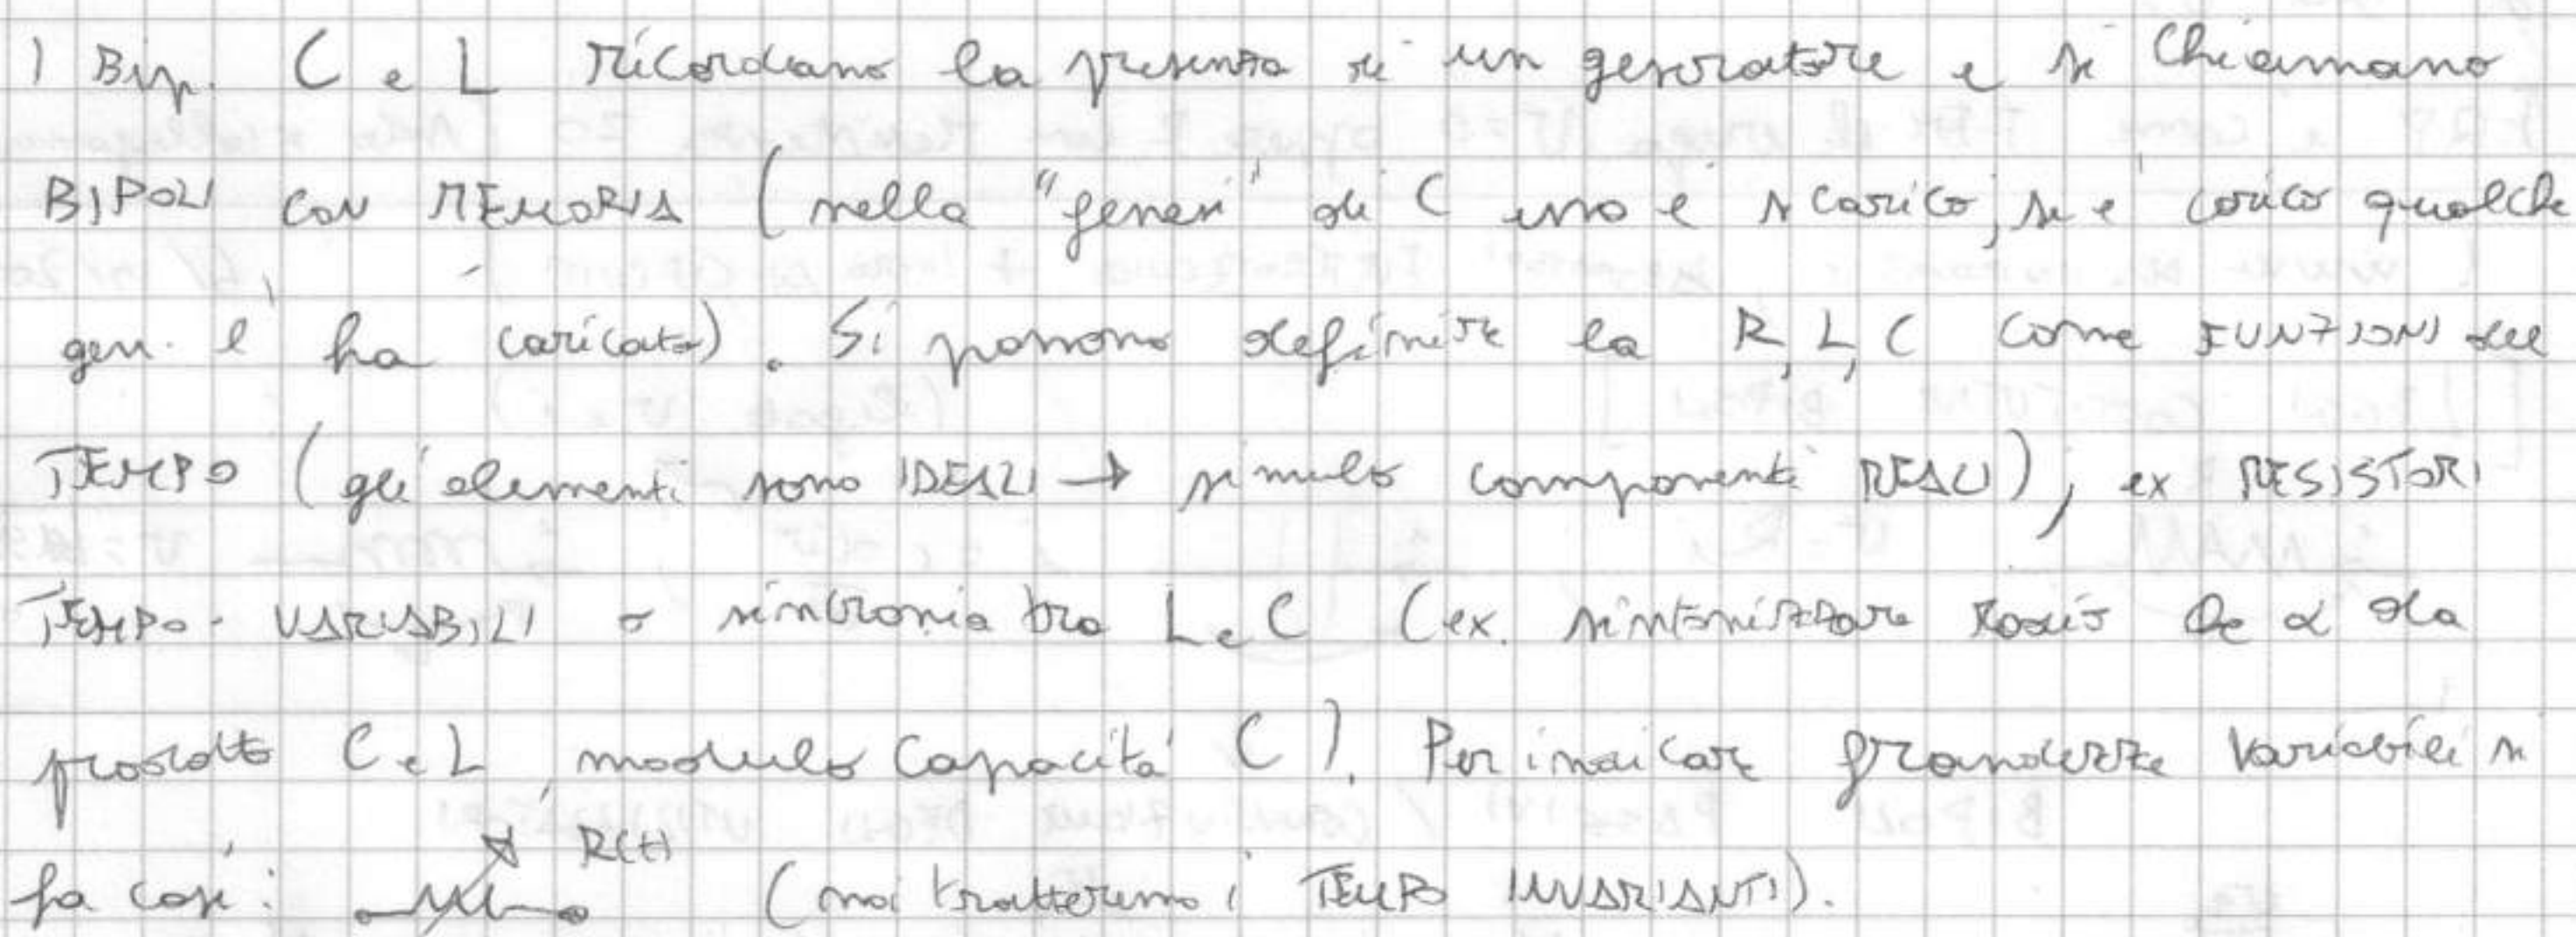 I Bip. C e L ricordano la presenza di un generatore e si chiamano
BIPOLI CON MEMORIA (nella "genesi" di C esso è scarico, se è carico qualche
gen. l'ha caricato). Si possono definire la R, L, C come FUNZIONI del
TEMPO (gli elementi sono IDEALI → simulo componenti REALI), ex RESISTORI
TEMPO-VARIABILI o sintonia tra L e C (ex. sintonizzare radio dà
prodotto C e L, modulo capacità C). Per indicare grandezze variabili si
fa così: R(t) (noi tratteremo i TEMPO INVARIANTI).